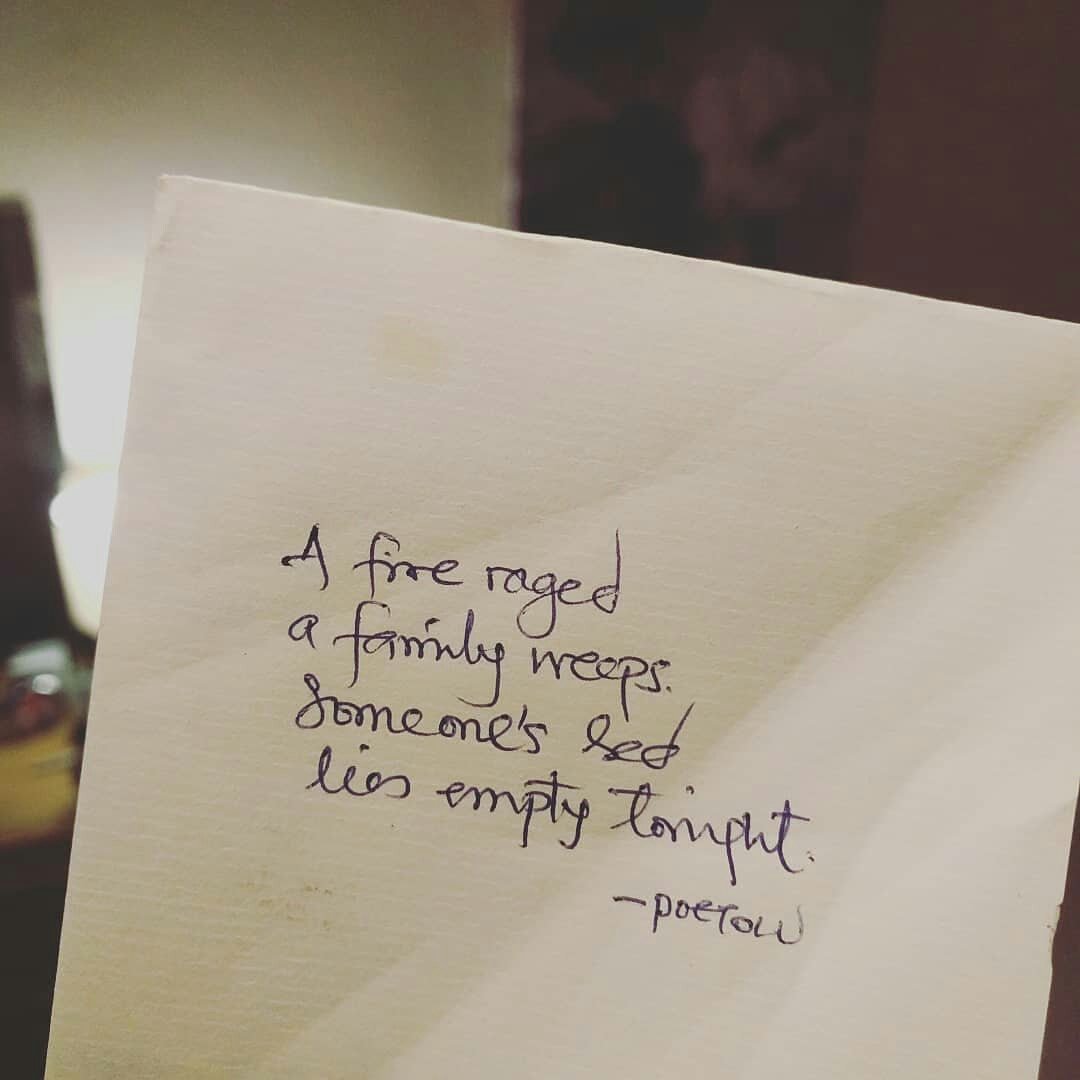 A fire raged
a family weeps.
Someone's bed
lies empty tonight.
- poetow